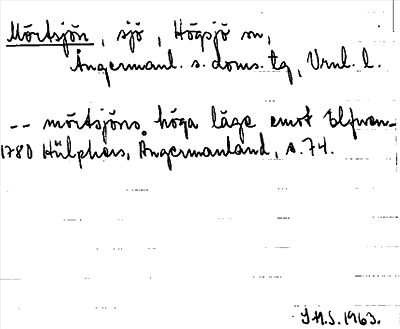 Mörtsjön, sjö, Högsjö sn,
Ångermanl. s. doms. tg, Vrnl. l.
-- mörtsjöns höga läge emot Elfwen-
1780 Hülphers, Ångermanland, s. 74.
1963.